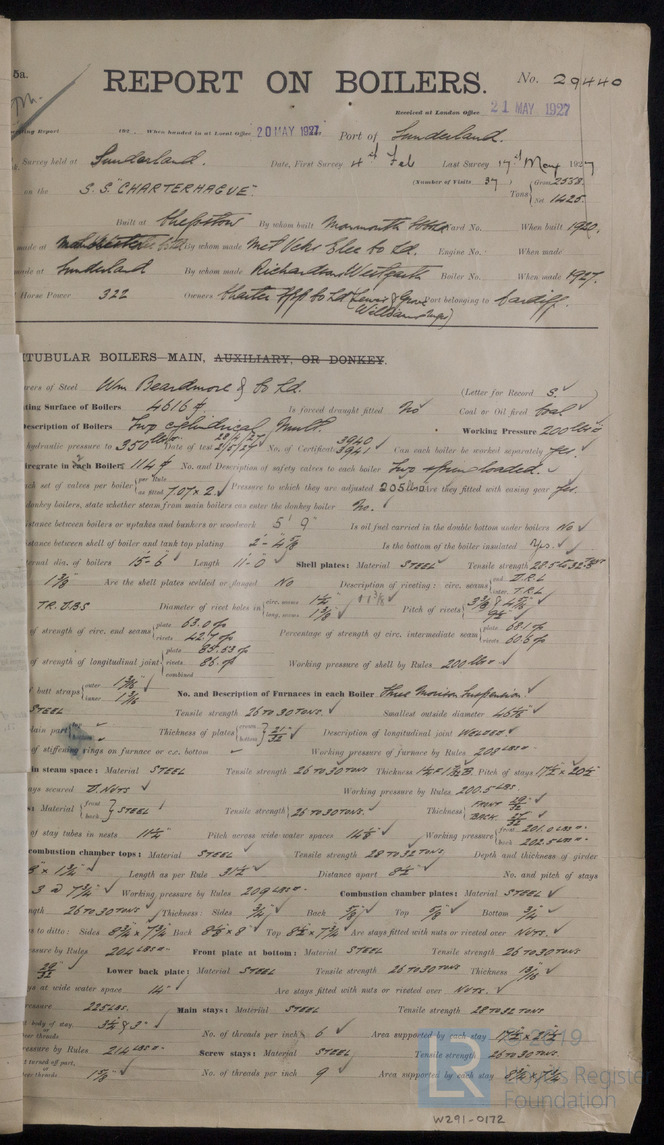 5a.
REPORT ON BOILERS.
No. 29440
Received at London Office 21 MAY 1927
Report 192 . When handed in at Local Office 20 MAY 1927. Port of Sunderland.
Survey held at Sunderland. Date, First Survey 4th Feb Last Survey 17th May 1927
(Number of Visits 37 ) Gross 2533
on the S.S. "CHARTERHAGUE" Tons Net 1425
Built at Chepstow By whom built Monmouth Yard No. When built 1920.
made at By whom made Met Vicks Elec Co Ld. Engine No. When made
made at Sunderland By whom made Richardsons Westgarth Boiler No. When made 1927.
Horse Power 322 Owners Port belonging to Cardiff.
TUBULAR BOILERS—MAIN, AUXILIARY, OR DONKEY.
of Steel Wm Beardmore & Co Ld. (Letter for Record S. )
ting Surface of Boilers 4616 Is forced draught fitted No Coal or Oil fired Coal
Description of Boilers Two cylindrical Mult. Working Pressure 200 lbs
hydraulic pressure to 350 lbs Date of test 28/4/27 2/5/27 No. of Certificate 3940 3941 Can each boiler be worked separately Yes.
iregrate in each Boiler 114 No. and Description of safety valves to each boiler Two spring loaded.
ch set of valves per boiler per Rule as fitted 7.07 x 2. Pressure to which they are adjusted 205 lbs Are they fitted with easing gear Yes.
donkey boilers, state whether steam from main boilers can enter the donkey boiler No.
stance between boilers or uptakes and bunkers or woodwork 5' 9" Is oil fuel carried in the double bottom under boilers No
stance between shell of boiler and tank top plating Is the bottom of the boiler insulated Yes.
dia. of boilers 15'-6 Length 11'-0 Shell plates: Material STEEL Tensile strength
1 3/8 Are the shell plates welded or flanged No Description of riveting: circ. seams end D.R.L. inter. T.R.L.
TR.D.BS Diameter of rivet holes in circ. seams long. seams Pitch of rivets
of strength of circ. end seams plate 63.0 % rivets 42.7 % Percentage of strength of circ. intermediate seam plate 68.1 % rivets 60.6 %
of strength of longitudinal joint plate 85.53 % rivets 86. % combined Working pressure of shell by Rules 200 lbs
of butt straps outer inner No. and Description of Furnaces in each Boiler Three Morison Suspension
STEEL Tensile strength 26 TO 30 TONS. Smallest outside diameter
lain part top Thickness of plates crown bottom 21/32 Description of longitudinal joint WELDED.
of stiffening rings on furnace or c.c. bottom Working pressure of furnace by Rules 208 LBS
in steam space: Material STEEL Tensile strength 26 TO 30 TONS Thickness Pitch of stays
ys secured D.NUTS Working pressure by Rules 200.5 LBS
: Material front back STEEL Tensile strength 26 TO 30 TONS Thickness FRONT BACK
of stay tubes in nests Pitch across wide water spaces Working pressure front 201.0 LBS back 202.5 LBS
combustion chamber tops: Material STEEL Tensile strength 28 TO 32 TONS Depth and thickness of girder
Length as per Rule 31 1/2 Distance apart 8 1/2 No. and pitch of stays
3 @ 7 3/4 Working pressure by Rules 209 LBS Combustion chamber plates: Material STEEL
ngth 26 TO 30 TONS Thickness: Sides 3/4 Back 5/8 Top 5/8 Bottom 3/4
s to ditto: Sides 8 3/4 x 7 3/4 Back 8 1/8 x 8" Top 8 1/2 x 7 3/4 Are stays fitted with nuts or riveted over NUTS.
essure by Rules 204 LBS Front plate at bottom: Material STEEL Tensile strength 26 TO 30 TONS
Lower back plate: Material STEEL Tensile strength 26 TO 30 TONS Thickness 13/16
ys at wide water space 14" Are stays fitted with nuts or riveted over NUTS.
ressure 225 LBS. Main stays: Material STEEL Tensile strength 28 TO 32 TONS
body of stay. or over threads 3 1/2 & 3" No. of threads per inch 6 Area supported by each stay
ressure by Rules 214 LBS Screw stays: Material STEEL Tensile strength 26 TO 30 TONS.
turned off part. or over threads 1 5/8 No. of threads per inch 9 Area supported by each stay
LR
© 2019
Lloyd's Register
Foundation
W291-0172